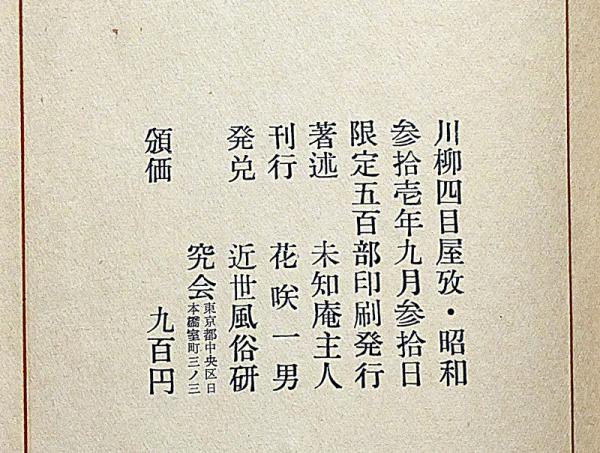 川柳四目屋攷・昭和
参拾壱年九月参拾日
限定五百部印刷発行
著述 未知庵主人
刊行 花咲一男
発兌 近世風俗研
究会 東京都中央区日
本橋室町三ノ三
頒価 九百円